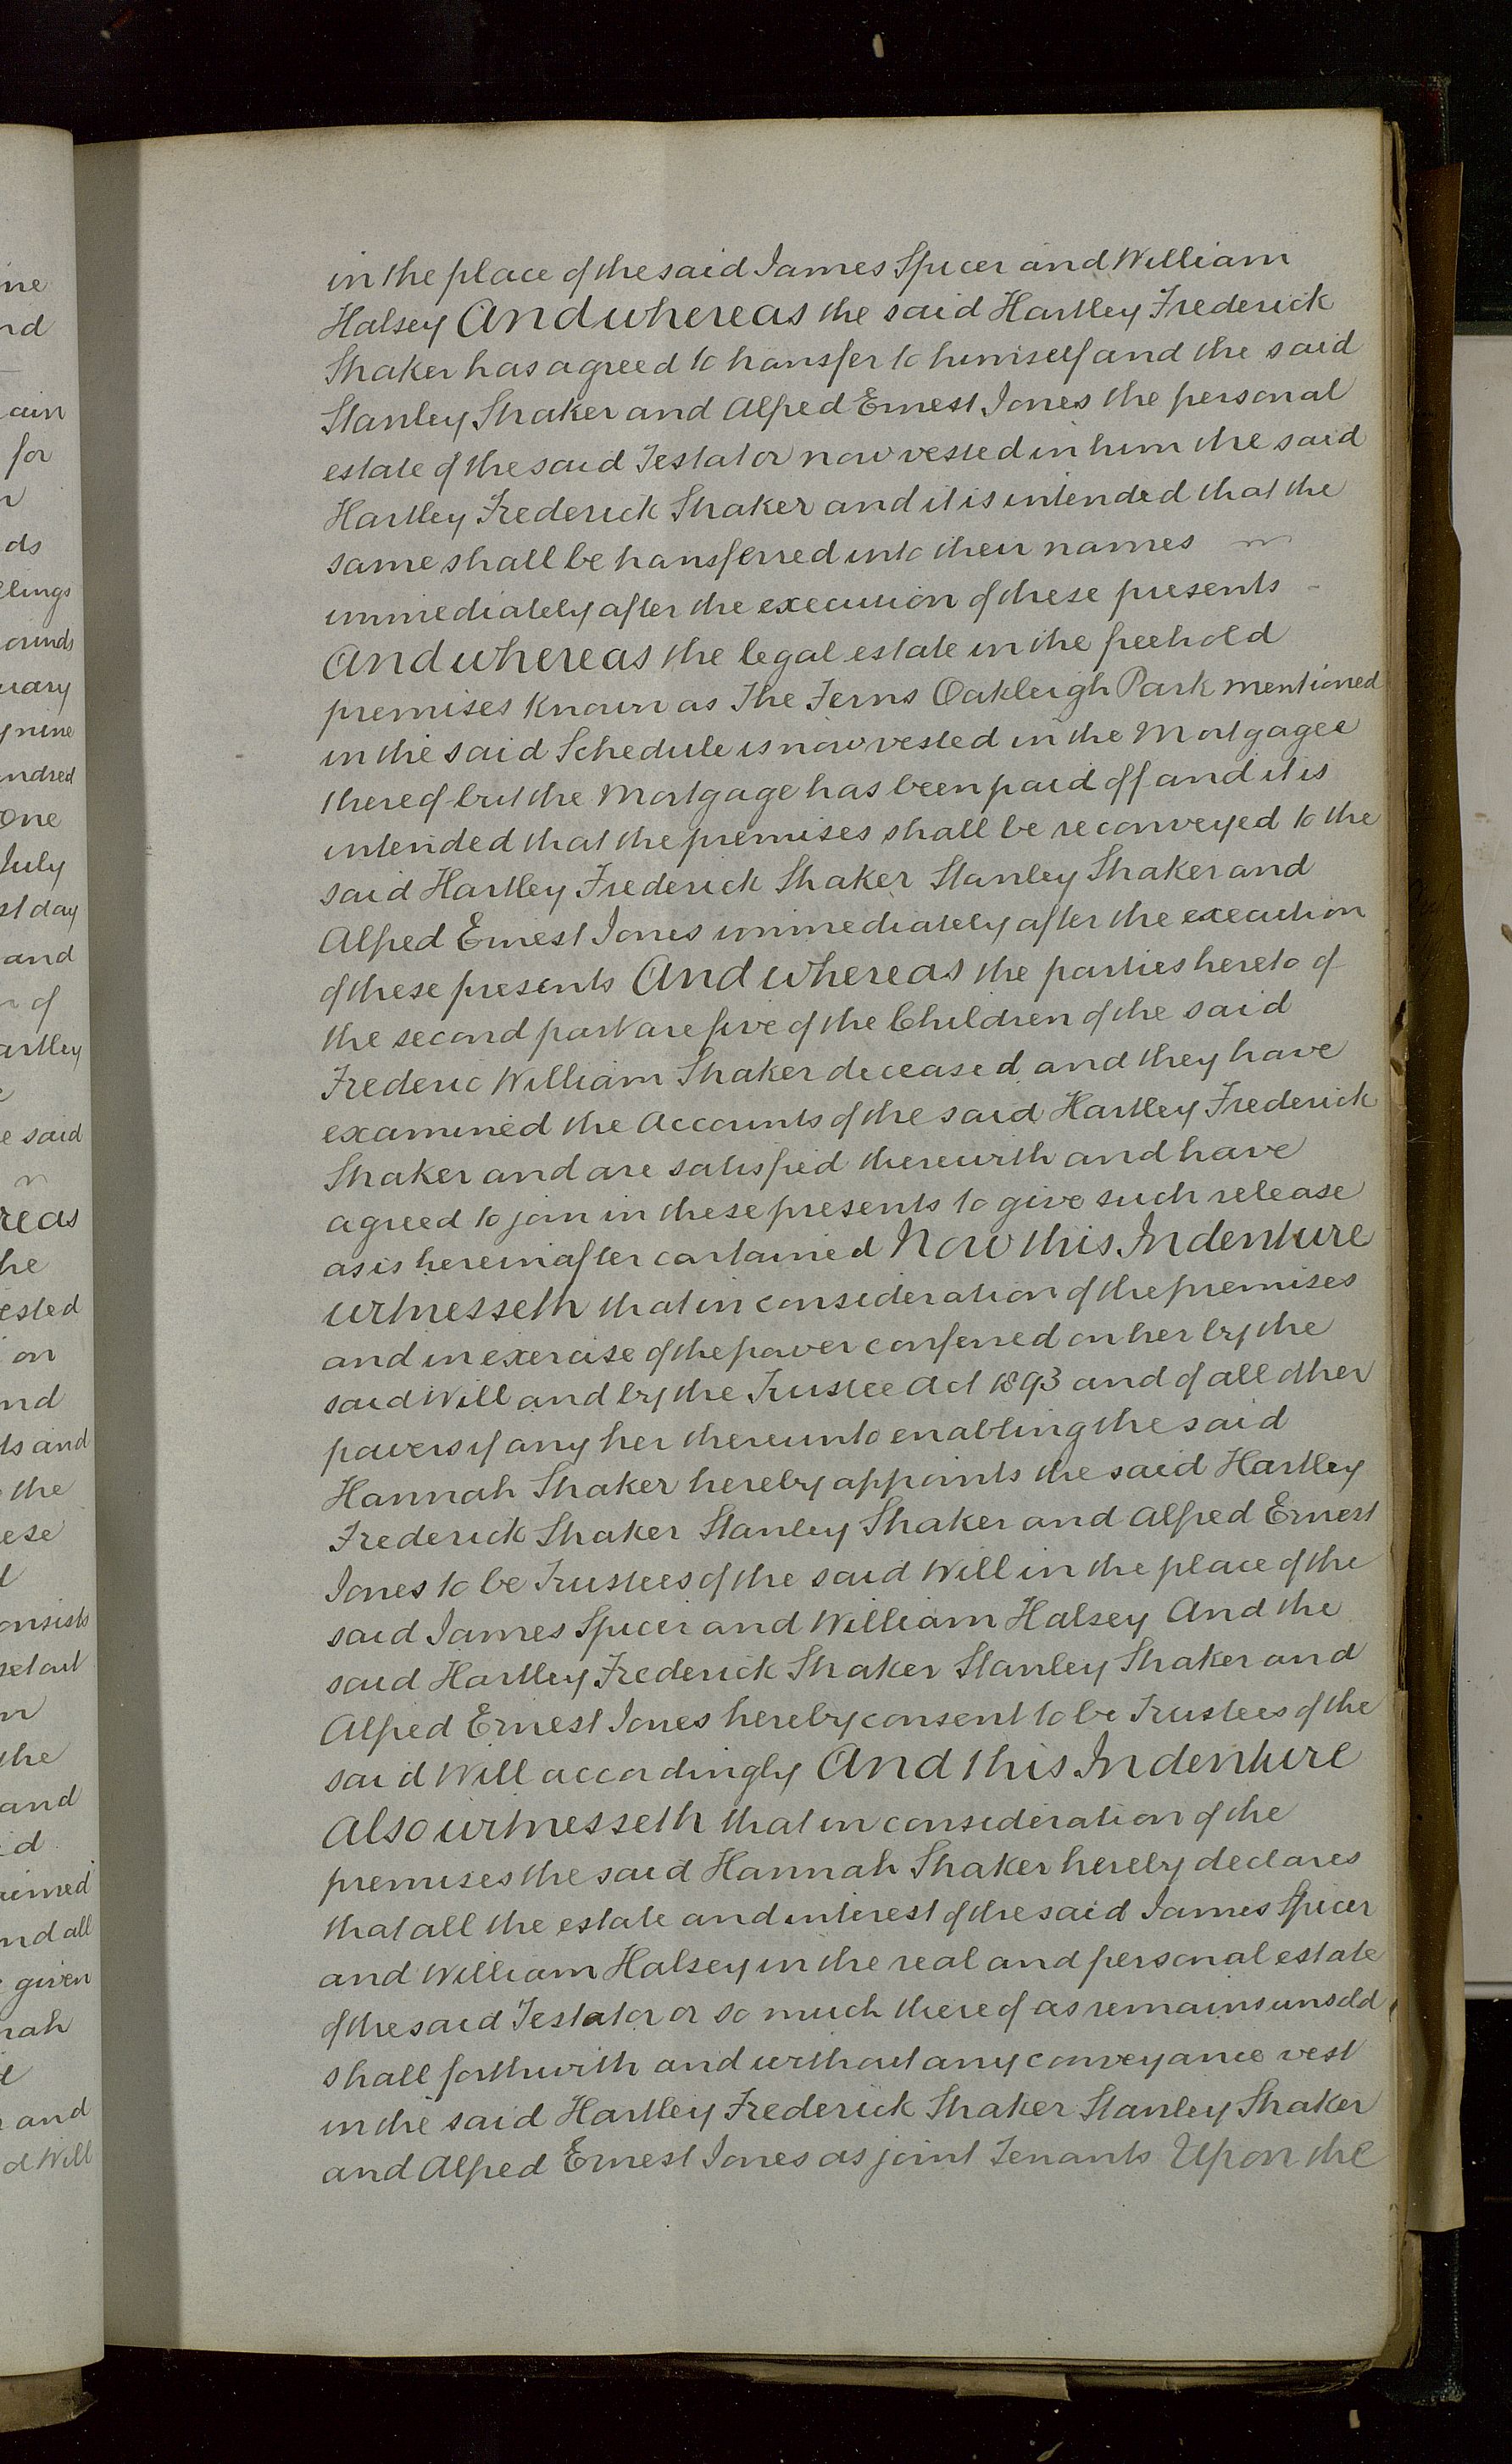 in the place of the said James Spicer and William
Halsey And whereas the said Hartley Frederick
Shaker has agreed to transfer to himself and the said
Stanley Shaker and Alfred Ernest Jones the personal
estate of the said Testator now vested in him the said
Hartley Frederick Shaker and it is intended that the
same shall be transferred into their names
immediately after the execution of these presents -
And whereas the legal estate in the freehold
premises known as The Ferns Oakleigh Park mentioned
in the said Schedule is now vested in the Mortgagee
thereof but the Mortgage has been paid off and it is
intended that the premises shall be reconveyed to the
said Hartley Frederick Shaker Stanley Shaker and
Alfred Ernest Jones immediately after the execution
of these presents And whereas the parties hereto of
the second part are five of the Children of the said
Frederic William Shaker deceased and they have
examined the Accounts of the said Hartley Frederick
Shaker and are satisfied therewith and have
agreed to join in these presents to give such release
as is hereinafter contained Now this Indenture
witnesseth that in consideration of the premises
and in exercise of the power conferred on her by the
said Will and by the Trustee Act 1893 and of all other
powers if any her thereunto enabling the said
Hannah Shaker hereby appoints the said Hartley
Frederick Shaker Stanley Shaker and Alfred Ernest
Jones to be Trustees of the said Will in the place of the
said James Spicer and William Halsey And the
said Hartley Frederick Shaker Stanley Shaker and
Alfred Ernest Jones hereby consent to be Trustees of the
said Will accordingly And this Indenture
Also witnesseth that in consideration of the
premises the said Hannah Shaker hereby declares
that all the estate and interest of the said James Spicer
and William Halsey in the real and personal estate
of the said Testator or so much thereof as remains unsold
shall forthwith and without any conveyance vest
in the said Hartley Frederick Shaker Stanley Shaker
and Alfred Ernest Jones as joint Tenants Upon the